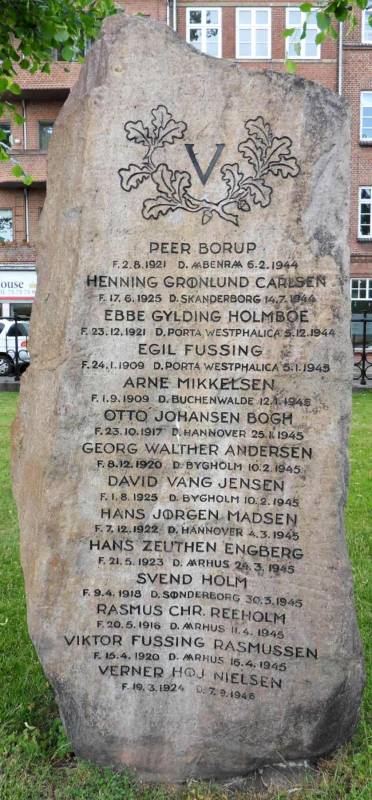 V
PEER BORUP
F. 2.8.1921 D. ÅBENRÅ 6.2.1944
HENNING GRØNLUND CARLSEN
F. 17.6.1925 D. SKANDERBORG 14.7.1944
EBBE GYLDING HOLMBOE
F. 23.12.1921 D. PORTA WESTPHALICA 5.12.1944
EGIL FUSSING
F. 24.1.1909 D. PORTA WESTPHALICA 5.1.1945
ARNE MIKKELSEN
F. 1.9.1909 D. BUCHENWALDE 12.1.1945
OTTO JOHANSEN BOGH
F. 23.10.1917 D. HANNOVER 25.1.1945
GEORG WALTHER ANDERSEN
F. 8.12.1920 D. BYGHOLM 10.2.1945
DAVID VANG JENSEN
F. 1.8.1925 D. BYGHOLM 10.2.1945
HANS JØRGEN MADSEN
F. 7.12.1922 D. HANNOVER 4.3.1945
HANS ZEUTHEN ENGBERG
F. 21.5.1923 D. AARHUS 24.3.1945
SVEND HOLM
F. 9.4.1918 D. SØNDERBORG 30.3.1945
RASMUS CHR. REEHOLM
F. 20.5.1916 D. AARHUS 11.4.1945
VIKTOR FUSSING RASMUSSEN
F. 15.4.1920 D. AARHUS 15.4.1945
VERNER HØJ NIELSEN
F. 19.3.1924 D. 7.9.1946